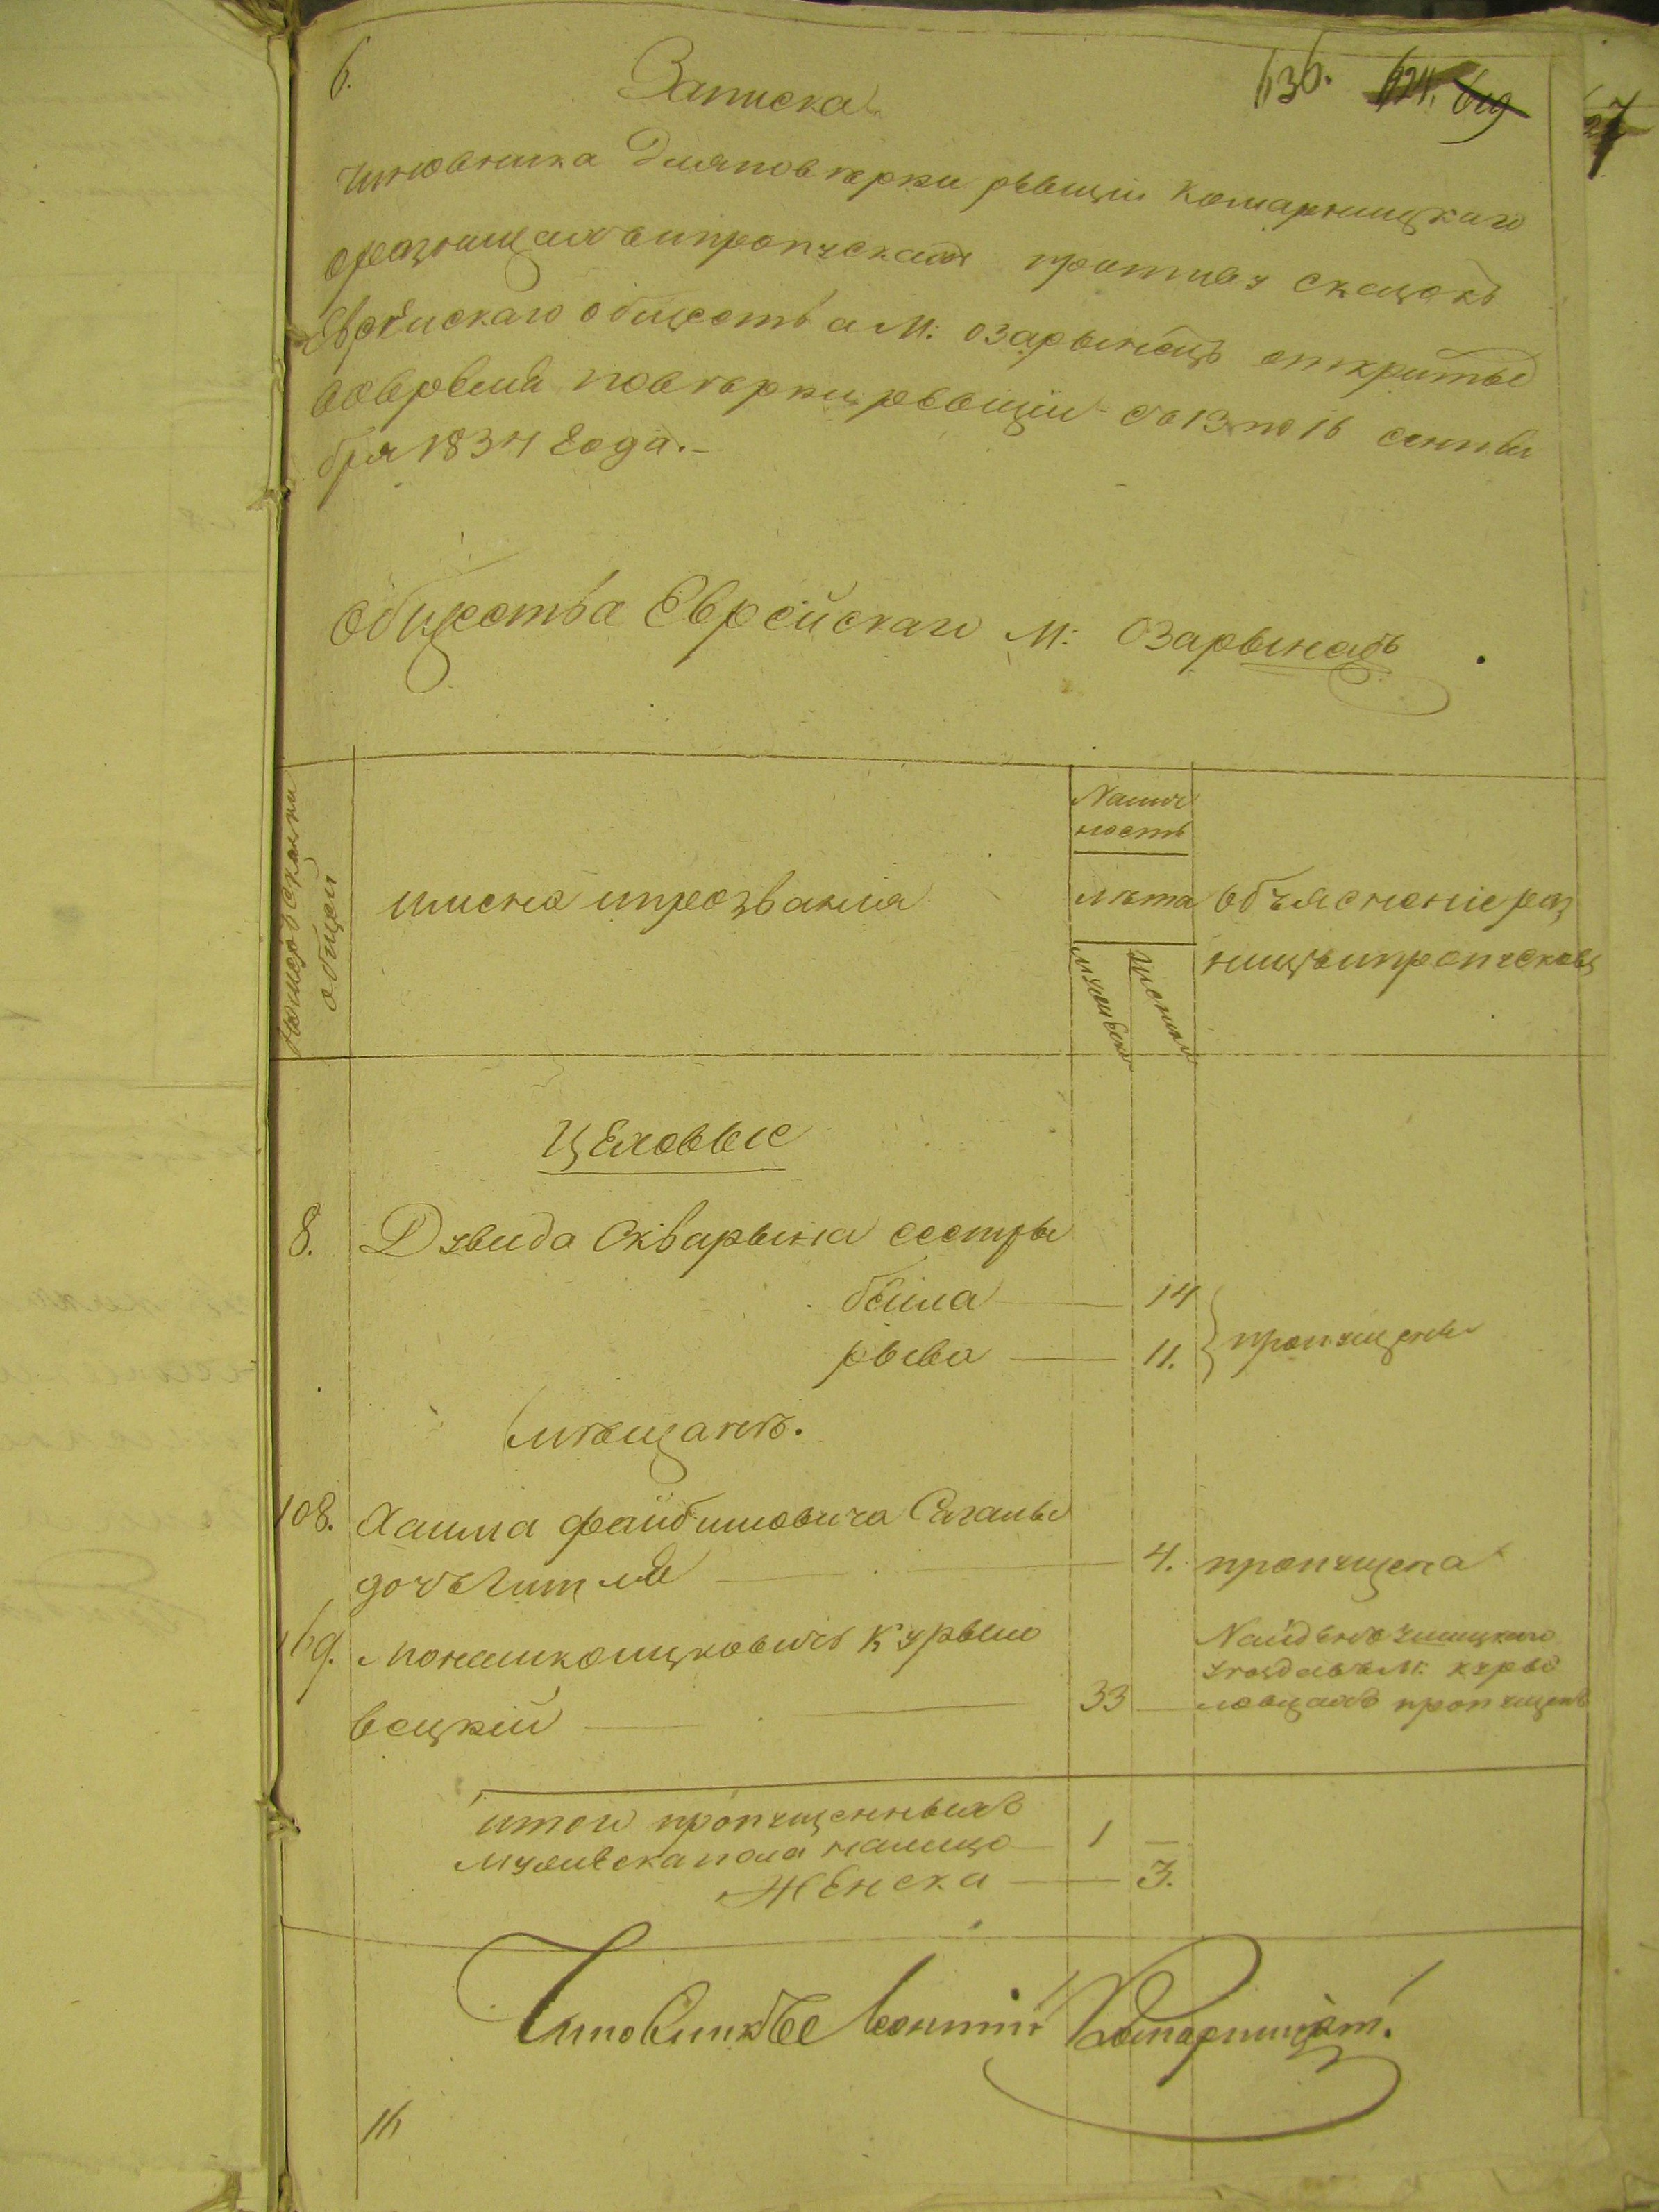 6.
Записка
636. 624. 619
27
чиновника дляповѣрки ревизіи Комарницкаго
оразницахъ ипропускахъ противу сказокъ
Еврейскаго общества М: Озарынецъ открытые
вовремя повѣрки ревизіи съ 13 по 16 сентя
бря 1834 Года.-
Общества Еврейскаго М: Озарынецъ
Номеръ Сказки
общей
имена ипрозванія
Налич
ность
лѣта
мужеска
женска
объясненіе раз
ницъ ипропусковъ
Цеховые
8. Дувида Скварына сестры
бейла — 14
рыва — 11. } пропущены
мѣщанъ.
108. Хаима файбишовича Сигалы
дочь Гитля — 4. пропущена
169. Мошко ицковичъ Курыло
вецкій — 33 —
Найденъ ушицкаго
уезда въ м: куры
ловцахъ пропущенъ
итого пропущенныхъ
мужеска пола налицо — 1 —
Женска — 3.
Чиновникъ Комарницкій.
16